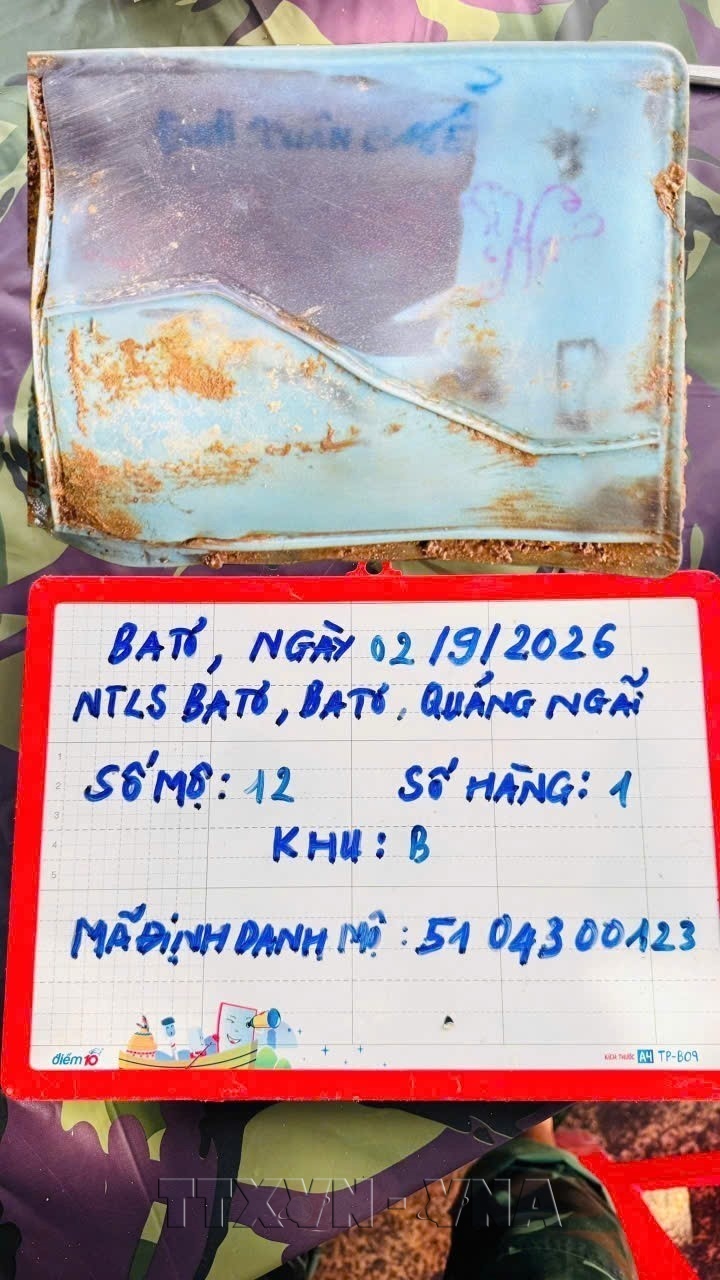 BATƠ, NGÀY 02/9/2026
NTLS BATƠ, BATƠ, QUẢNG NGÃI
SỐ MỘ: 12 SỐ HÀNG: 1
KHU: B
MÃ ĐỊNH DANH MỘ: 51 04300123
điểm 10
KÍCH THƯỚC A4 TP-B09
TTXVN-VNA